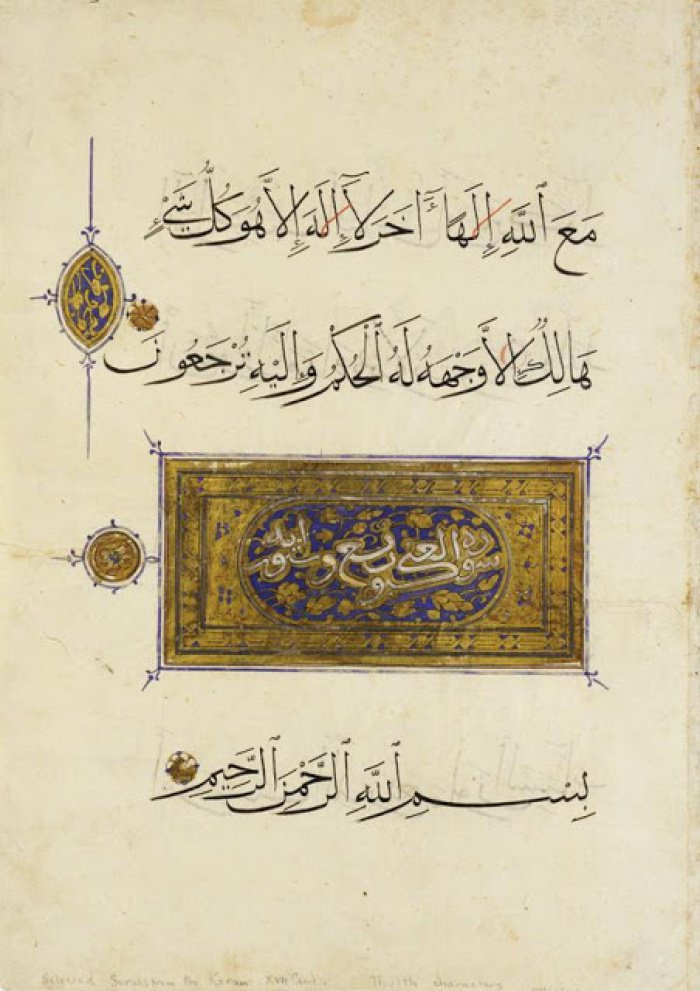 مَعَ ٱللَّهِ إِلَهًا ءَاخَرَ لَآ إِلَهَ إِلَّا هُوَ كُلُّ شَيْءٍ
هَالِكٌ إِلَّا وَجْهَهُ لَهُ ٱلْحُكْمُ وَإِلَيْهِ تُرْجَعُونَ
سوره العنكبوت تسع وستون ايه
بِسْمِ ٱللَّهِ ٱلرَّحْمَنِ ٱلرَّحِيمِ
Selected Surahs from the Koran Thulth characters